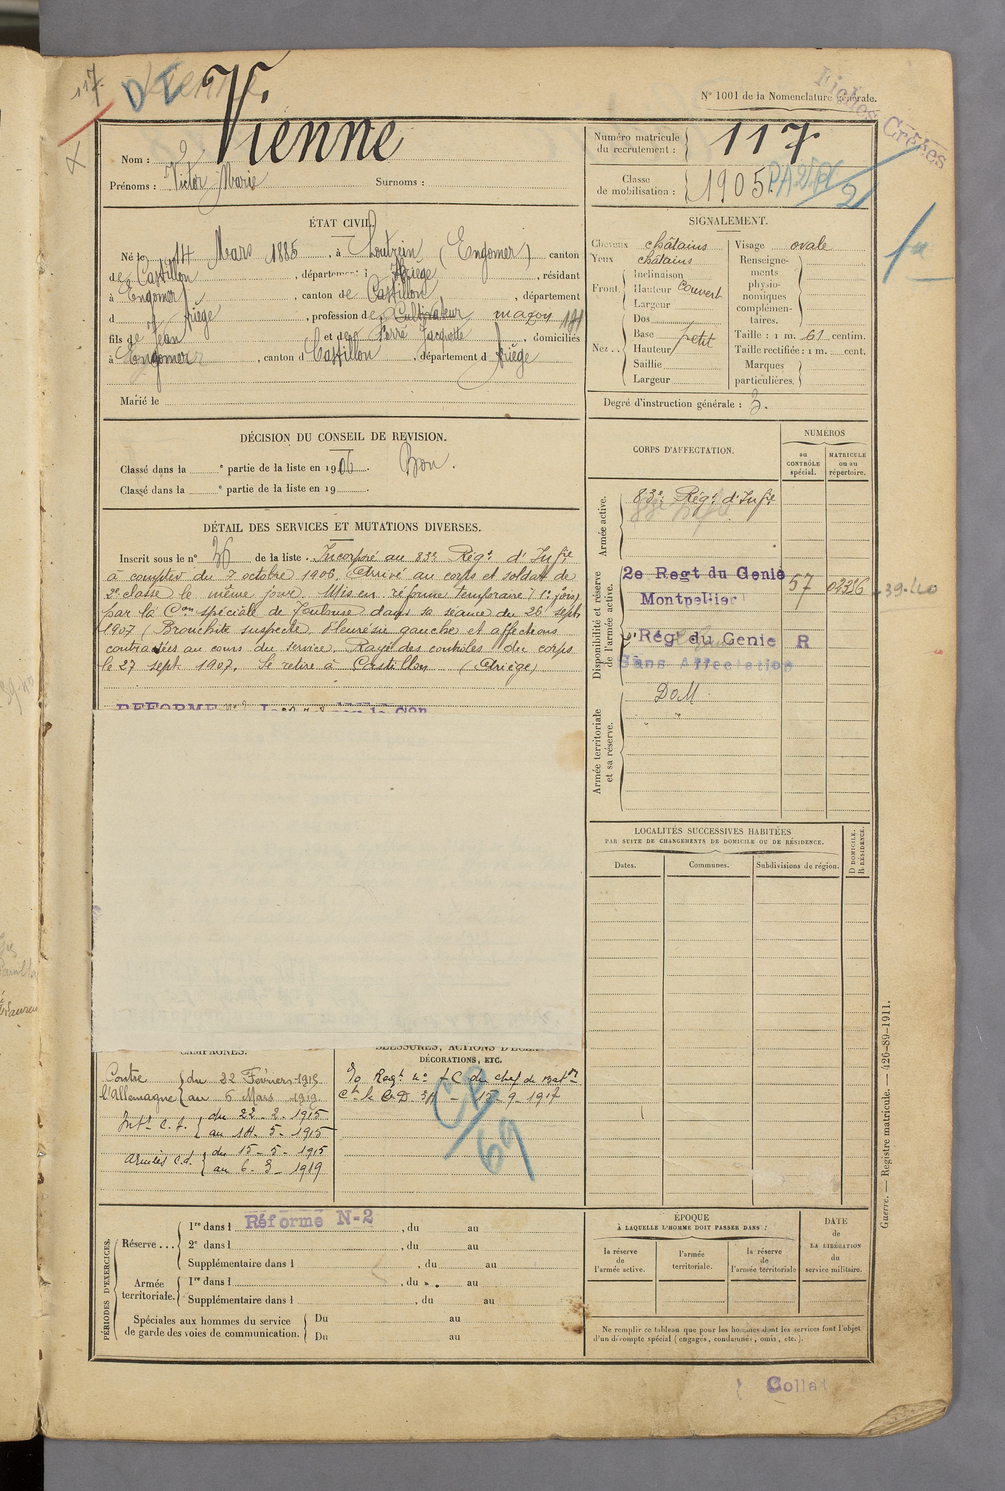 117
N° 1001 de la Nomenclature générale.
Fiches Créées
Nom : Vienne
Prénoms : Victor Marie Surnoms :
Numéro matricule du recrutement : 117
Classe de mobilisation : 1905
ÉTAT CIVIL
Né le 14 Mars 1885, à Loutrein (Engomer) canton
de Castillon, département : Ariège, résidant
à Engomer, canton de Castillon, département
d Ariège, profession de Cultivateur maçon
fils de Jean et de Ferré Jacquette, domiciliés
à Engomer, canton d Castillon, département d Ariège
Marié le
SIGNALEMENT.
Cheveux châtains
Yeux châtains
Front. Inclinaison
Hauteur couvert
Largeur
Nez . . Dos
Base petit
Hauteur
Saillie
Largeur
Visage ovale
Renseignements physionomiques complémentaires.
Taille : 1 m. 61 centim.
Taille rectifiée : 1 m. cent.
Marques particulières.
Degré d'instruction générale : 3.
DÉCISION DU CONSEIL DE REVISION.
Classé dans la e partie de la liste en 1906. Bon.
Classé dans la e partie de la liste en 19 .
DÉTAIL DES SERVICES ET MUTATIONS DIVERSES.
Inscrit sous le n° 36 de la liste. Incorporé au 83e Régt d'Infie
à compter du 7 octobre 1906. Arrivé au corps et soldat de
2e classe le même jour. Mis en réforme temporaire (1e fois)
par la Con spéciale de Toulouse dans sa séance du 26 sept
1907 (Bronchite suspecte, Pleurésie gauche et affections
contractées au cours du service. Rayé des contrôles du corps
le 27 sept 1907. Se retire à Castillon (Ariège)
CORPS D'AFFECTATION.
NUMÉROS
au CONTRÔLE spécial.
MATRICULE ou au répertoire.
Armée active.
83e Régt d'Infie
Disponibilité et réserve de l'armée active.
2e Regt du Genie 57 02326
Montpellier
39-40
Rég' du Genie R
Sans Affectation
Armée territoriale et sa réserve.
DoM.
" "
LOCALITÉS SUCCESSIVES HABITÉES
PAR SUITE DE CHANGEMENTS DE DOMICILE OU DE RÉSIDENCE.
Dates. Communes. Subdivisions de région. D DOMICILE. R RÉSIDENCE.
CAMPAGNES.
Contre l'allemagne du 22 Février 1915
au 6 Mars 1919
Intr C.S. du 22-2-1915
au 14-5-1915
armées C.d. du 15-5-1915
au 6-3-1919
BLESSURES, ACTIONS D'ÉCLAT
DÉCORATIONS, ETC.
CP
69
PÉRIODES D'EXERCICES.
Réserve . . . 1re dans l Réforme N-2, du au
2e dans l , du au
Supplémentaire dans l , du au
Armée territoriale. 1re dans l , du au
Supplémentaire dans l , du au
Spéciales aux hommes du service de garde des voies de communication. Du au
Du au
ÉPOQUE
À LAQUELLE L'HOMME DOIT PASSER DANS :
la réserve de l'armée active.
l'armée territoriale.
la réserve de l'armée territoriale
DATE de LA LIBÉRATION du service militaire.
Ne remplir ce tableau que pour les hommes dont les services font l'objet
d'un décompte spécial (engagés, condamnés, omis, etc.).
Guerre. — Registre matricule. — 426-89-1911.